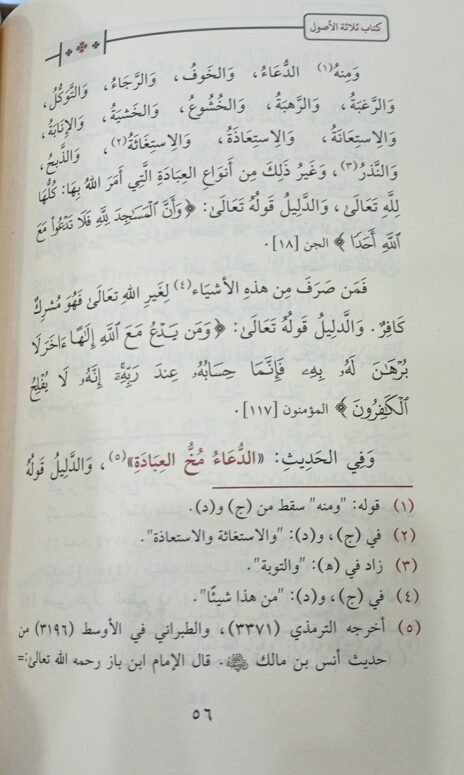 كتاب ثلاثة الأصول
وَمِنهُ(١) الدُّعَاءُ، وَالخَوفُ، وَالرَّجَاءُ، وَالتَّوَكُّلُ،
وَالرَّغبَةُ، وَالرَّهبَةُ، وَالخُشُوعُ، وَالخَشيَةُ، وَالإِنَابَةُ،
وَالاِستِعَانَةُ، وَالاِستِعَاذَةُ، وَالاِستِغَاثَةُ(٢)، وَالذَّبحُ،
وَالنَّذرُ(٣)، وَغَيرُ ذَلِكَ مِن أَنوَاعِ العِبَادَةِ الَّتِي أَمَرَ اللهُ بِهَا: كُلُّهَا
لِلَّهِ تَعَالَى، وَالدَّلِيلُ قَولُهُ تَعَالَى: ﴿وَأَنَّ ٱلۡمَسَٰجِدَ لِلَّهِ فَلَا تَدۡعُواْ مَعَ
ٱللَّهِ أَحَدٗا﴾ الجن [١٨].
فَمَن صَرَفَ مِن هَذِهِ الأَشيَاءِ(٤) لِغَيرِ اللهِ تَعَالَى فَهُوَ مُشرِكٌ
كَافِرٌ. وَالدَّلِيلُ قَولُهُ تَعَالَى: ﴿وَمَن يَدۡعُ مَعَ ٱللَّهِ إِلَٰهًا ءَاخَرَ لَا
بُرۡهَٰنَ لَهُۥ بِهِۦ فَإِنَّمَا حِسَابُهُۥ عِندَ رَبِّهِۦٓۚ إِنَّهُۥ لَا يُفۡلِحُ
ٱلۡكَٰفِرُونَ﴾ المؤمنون [١١٧].
وَفِي الحَدِيثِ: «الدُّعَاءُ مُخُّ العِبَادَةِ»(٥)، وَالدَّلِيلُ قَولُهُ
(١) قوله: "ومنه" سقط من (ج) و(د).
(٢) في (ج)، و(د): "والاستغاثة والاستعاذة".
(٣) زاد في (ه): "والتوبة".
(٤) في (ج)، و(د): "من هذا شيئًا".
(٥) أخرجه الترمذي (٣٣٧١)، والطبراني في الأوسط (٣١٩٦) من
حديث أنس بن مالك ﷺ. قال الإمام ابن باز رحمه الله تعالى:=
٥٦